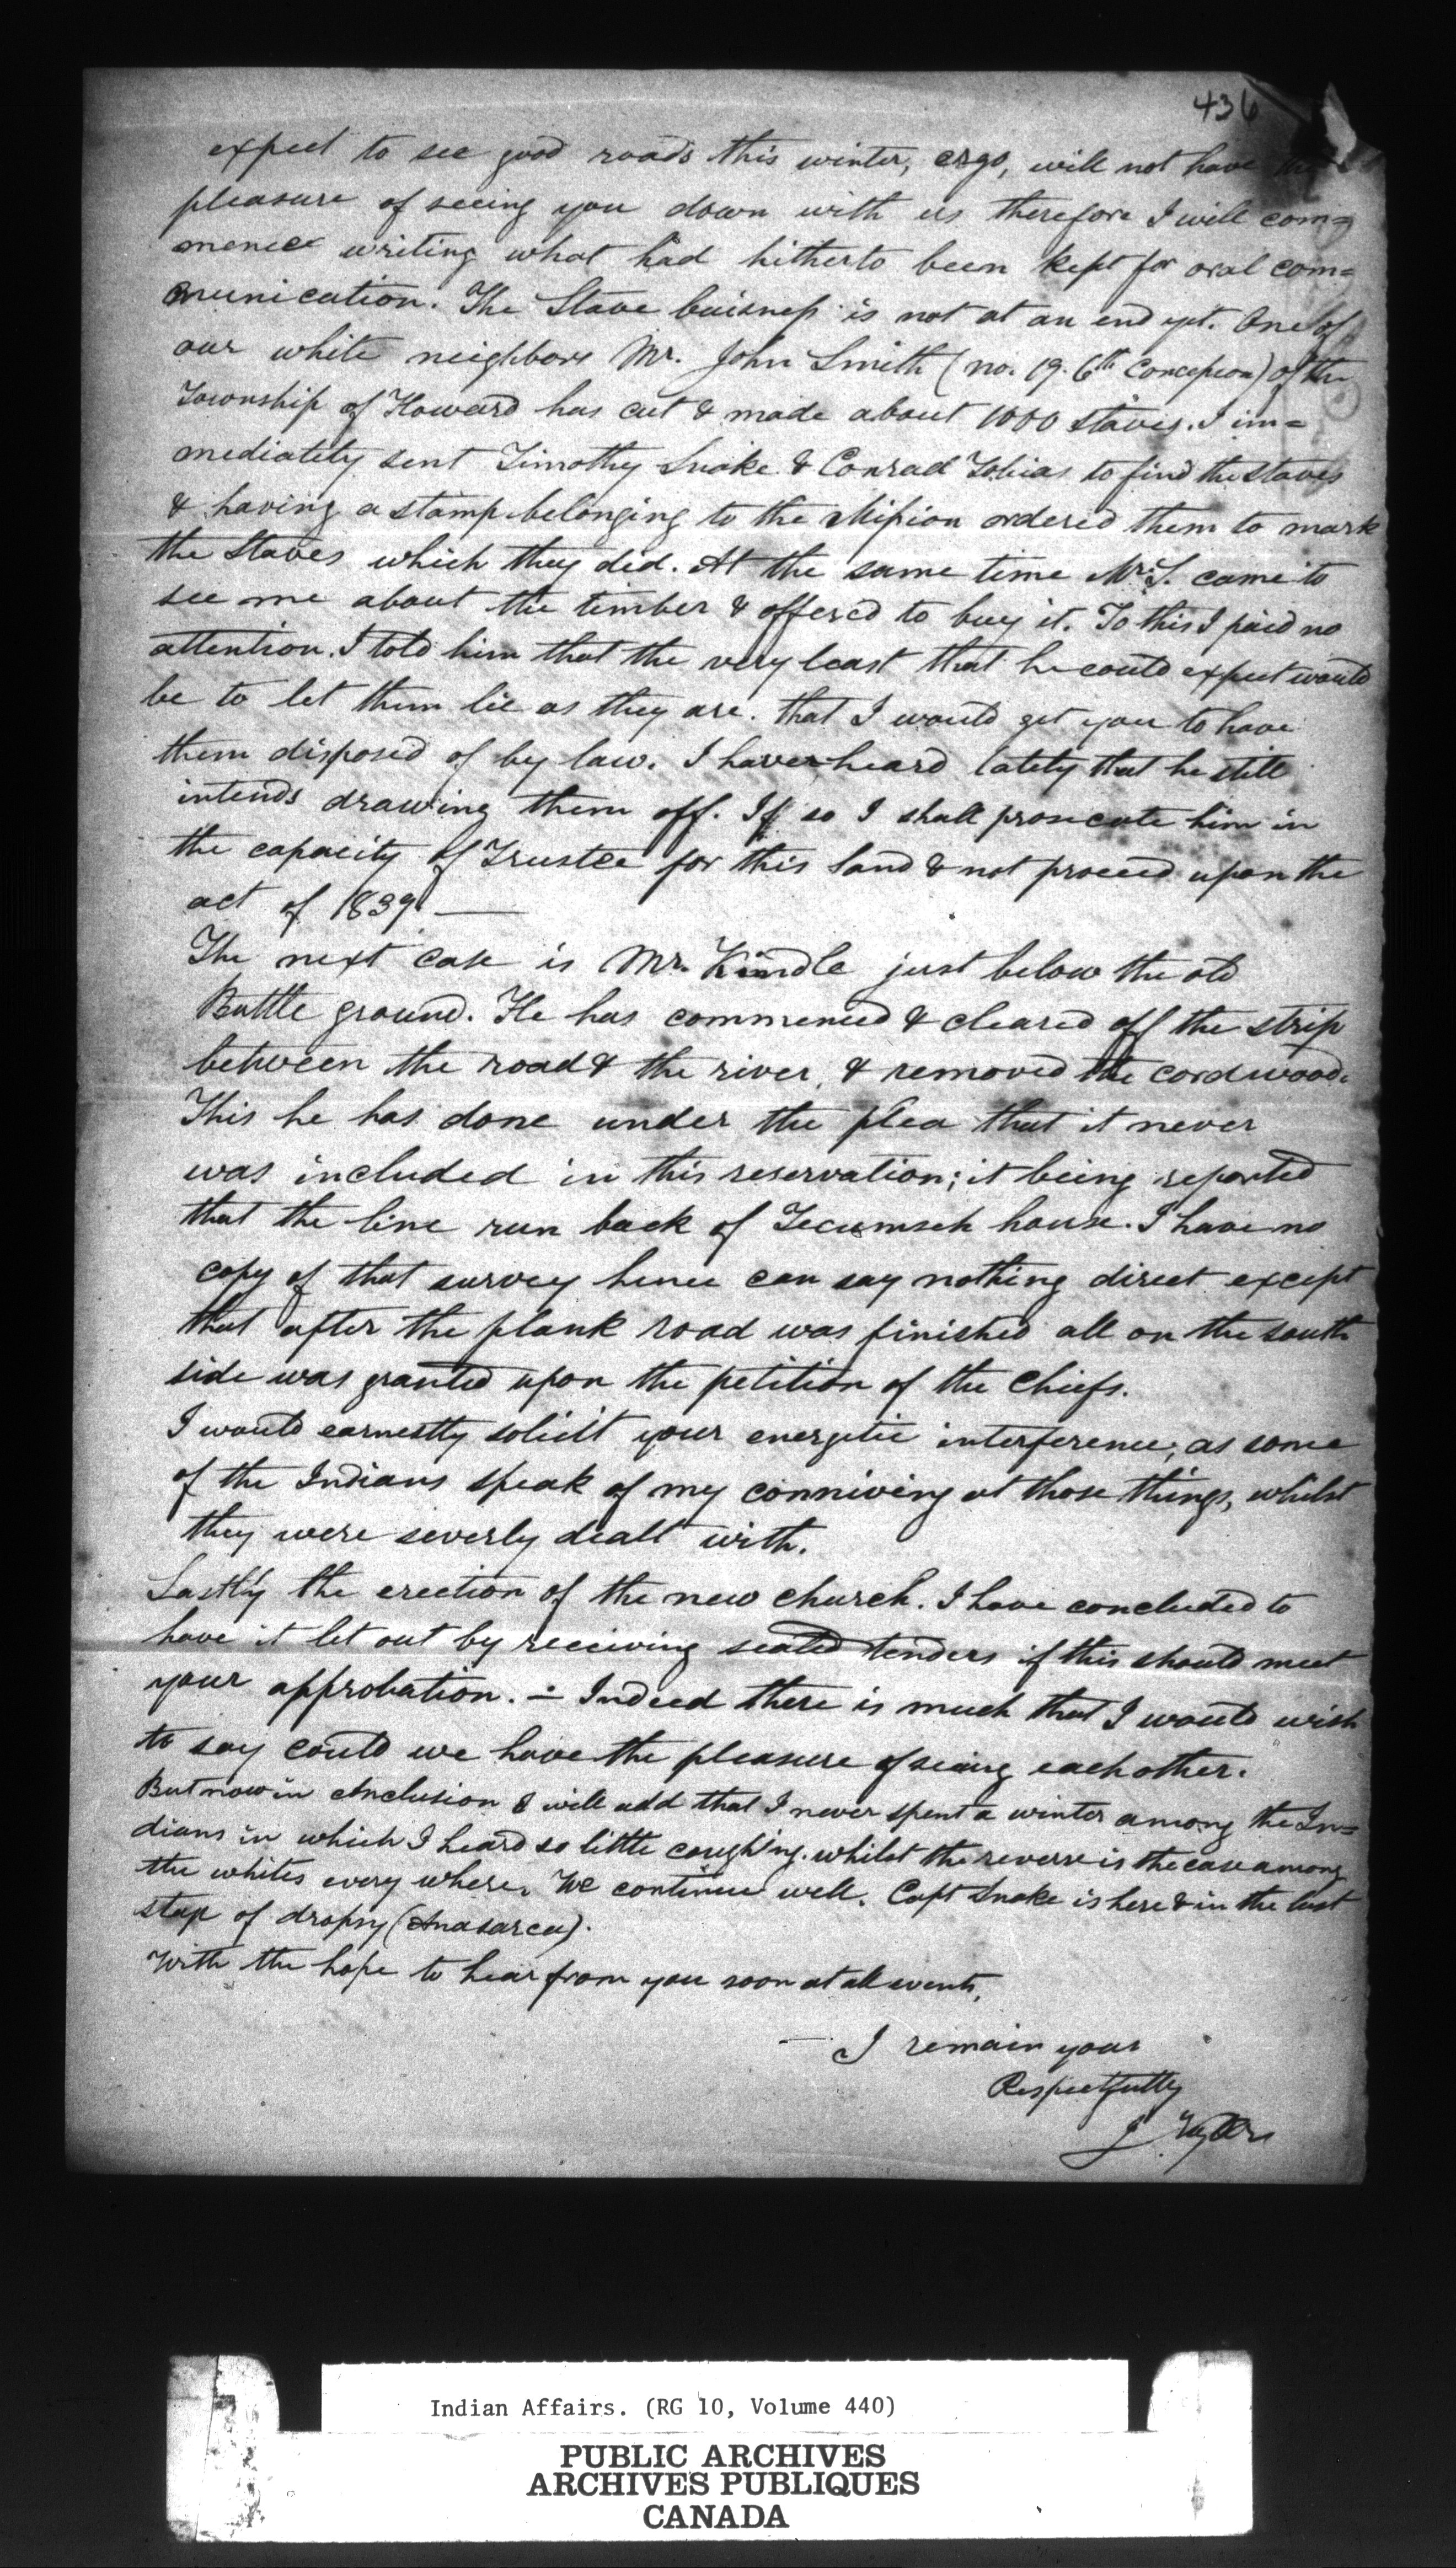 436
expect to see good roads this winter, ergo, will not have the
pleasure of seeing you down with us therefore I will com=
mence writing what had hitherto been kept for oral com=
munication. The Stave buisness is not at an end yet. One of
our white neighbors Mr. John Smith (no. 19. 6th Concession) of the
Township of Howard has cut & made about 1000 staves. I im=
mediately sent Timothy Snake & Conrad Tobias to find the staves
& having a stamp belonging to the Mission ordered them to mark
the staves which they did. At the same time Mr S. came to
see me about the timber & offered to buy it. To this I paid no
attention. I told him that the very least that he could expect would
be to let them lie as they are. that I would get you to have
them disposed of by law. I have heard lately that he still
intends drawing them off. If so I shall prosecute him in
the capacity of Trustee for this land & not proceed upon the
act of 1839 —
The next case is Mr. Kindle just below the old
Battle ground. He has commenced & cleared off the strip
between the road & the river, & removed the cordwood.
This he has done under the plea that it never
was included in this reservation; it being reported
that the line run back of Tecumseh house. I have no
copy of that survey hence can say nothing direct except
that after the plank road was finished all on the south
side was granted upon the petition of the Chiefs.
I would earnestly solicit your energetic interference, as some
of the Indians speak of my conniving at those things, whilst
they were severly dealt with.
Lastly the erection of the new church. I have concluded to
have it let out by receiving sealed tenders if this should meet
your approbation. — Indeed there is much that I would wish
to say could we have the pleasure of seeing each other.
But now in conclusion I will add that I never spent a winter among the In=
dians in which I heard so little coughing. whilst the reverse is the case among
the whites every where. We continue well. Capt Snake is here & in the last
stage of dropsy (Anasarca).
With the hope to hear from you soon at all events,
— I remain your
Respectfully
J
Indian Affairs. (RG 10, Volume 440)
PUBLIC ARCHIVES
ARCHIVES PUBLIQUES
CANADA